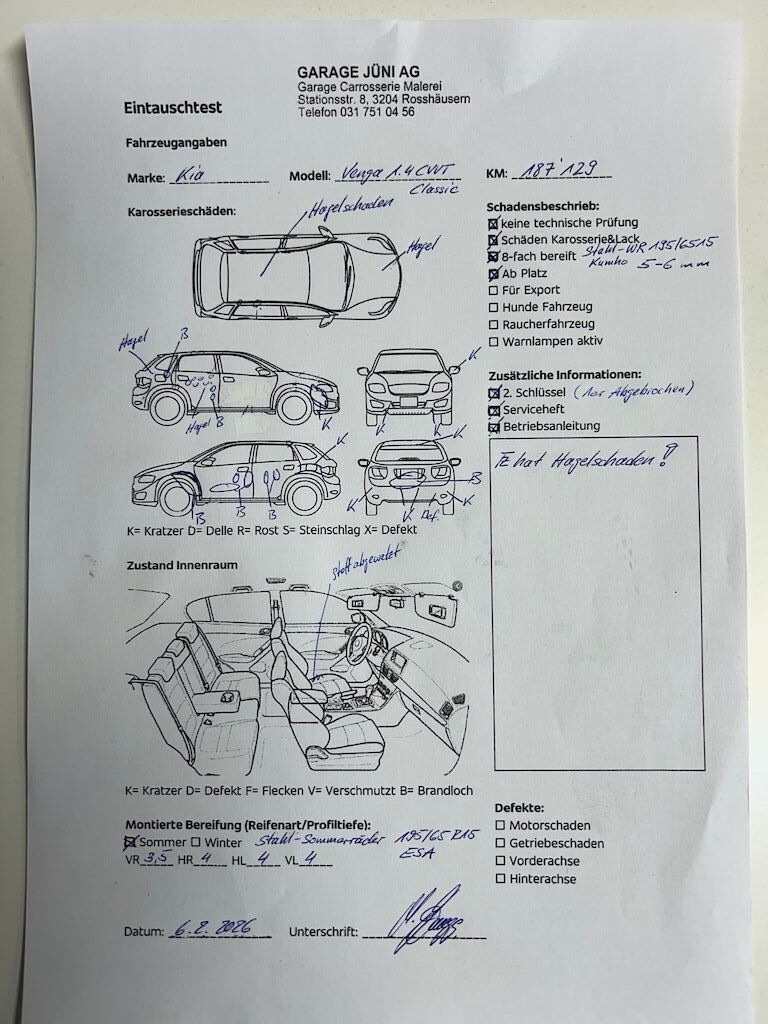 GARAGE JÜNI AG
Garage Carrosserie Malerei
Stationsstr. 8, 3204 Rosshäusern
Telefon 031 751 04 56
Eintauschtest
Fahrzeugangaben
Marke: Kia Modell: Venga 1.4 CVVT KM: 187'129
Classic
Karosserieschäden:
Hagelschaden
Hagel
Schadensbeschrieb:
keine technische Prüfung
Schäden Karosserie&Lack
8-fach bereift Stahl-WR 195/65 15
Kumho 5-6 mm
Ab Platz
Für Export
Hunde Fahrzeug
Raucherfahrzeug
Warnlampen aktiv
Hagel B K
Hagel B K K K
Zusätzliche Informationen:
2. Schlüssel (1er Abgebrochen)
Serviceheft
Betriebsanleitung
K K K
B B B K B K
K Def.
K= Kratzer D= Delle R= Rost S= Steinschlag X= Defekt
Fz hat Hagelschaden!
Zustand Innenraum
Stoff abgewetzt
K= Kratzer D= Defekt F= Flecken V= Verschmutzt B= Brandloch
Montierte Bereifung (Reifenart/Profiltiefe):
Sommer Winter Stahl-Sommerräder 195/65 R15
VR 3,5 HR 4 HL 4 VL 4 ESA
Defekte:
Motorschaden
Getriebeschaden
Vorderachse
Hinterachse
Datum: 6.2.2026 Unterschrift: